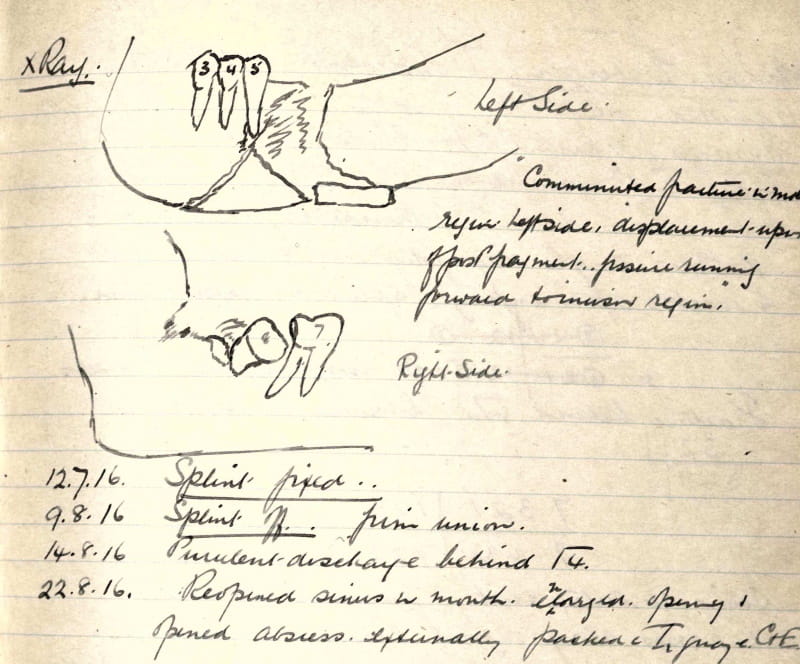 x Ray.
3 4 5
Left Side.
"Comminuted fracture in
region left side, displacement
of post fragment.. fissure running
forward to incisor region."
6 7
Right Side.
12.7.16. Splint fixed..
9.8.16 Splint off.. firm union.
14.8.16 Purulent discharge behind 4.
22.8.16. Reopened sinus in mouth. Enlarged. opening &
opened abscess. externally packed c